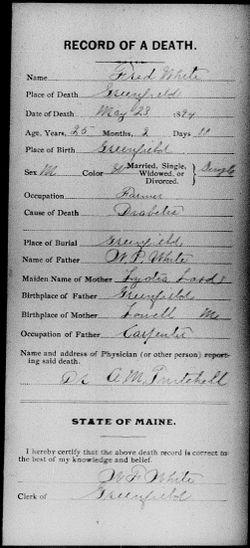 RECORD OF A DEATH.
Name Fred White
Place of Death Greenfield
Date of Death May 23 1894
Age, Years, 25 Months, 2 Days
Place of Birth Greenfield
Sex M Color W Married, Single, Widowed, or Divorced. } Single
Occupation Farmer
Cause of Death Diabetis
Place of Burial Greenfield
Name of Father W. P. White
Maiden Name of Mother Lydia
Birthplace of Father Greenfield
Birthplace of Mother Lowell Me
Occupation of Father Carpenter
Name and address of Physician (or other person) report-
ing said death.
Dr A. M. Pritchell
STATE OF MAINE.
I hereby certify that the above death record is correct to
the best of my knowledge and belief.
White
Clerk of Greenfield